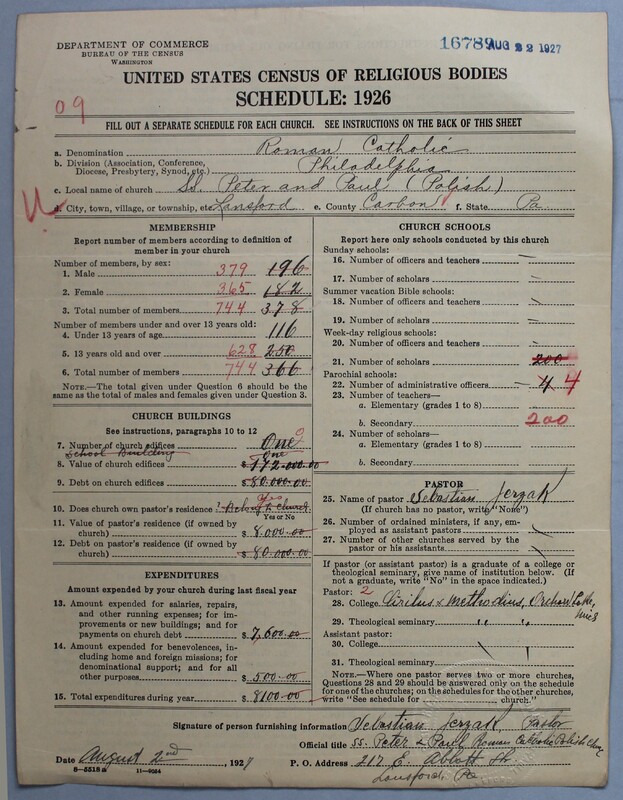 DEPARTMENT OF COMMERCE
BUREAU OF THE CENSUS
WASHINGTON
16789 AUG 22 1927
UNITED STATES CENSUS OF RELIGIOUS BODIES
SCHEDULE: 1926
09
FILL OUT A SEPARATE SCHEDULE FOR EACH CHURCH. SEE INSTRUCTIONS ON THE BACK OF THIS SHEET
a. Denomination Roman Catholic
b. Division (Association, Conference, Diocese, Presbytery, Synod, etc.) Philadelphia
c. Local name of church SS. Peter and Paul (Polish)
d. City, town, village, or township, etc. Lansford e. County Carbon f. State Pa.
MEMBERSHIP
Report number of members according to definition of
member in your church
Number of members, by sex:
1. Male 379 196
2. Female 365 182
3. Total number of members 744 378
Number of members under and over 13 years old:
4. Under 13 years of age 116
5. 13 years old and over 628 250
6. Total number of members 744 366
NOTE.—The total given under Question 6 should be
the same as the total of males and females given under Question 3.
CHURCH BUILDINGS
See instructions, paragraphs 10 to 12
7. Number of church edifices One
School Building One
8. Value of church edifices $172.000.00
9. Debt on church edifices $80.000.00
Yes
10. Does church own pastor's residence? Belong to church
Yes or No
11. Value of pastor's residence (if owned by
church) $8.000.00
12. Debt on pastor's residence (if owned by
church) $80.000.00
EXPENDITURES
Amount expended by your church during last fiscal year
13. Amount expended for salaries, repairs,
and other running expenses; for im-
provements or new buildings; and for
payments on church debt $7,600.00
14. Amount expended for benevolences, in-
cluding home and foreign missions; for
denominational support; and for all
other purposes $500.00
15. Total expenditures during year $8100.00
CHURCH SCHOOLS
Report here only schools conducted by this church
Sunday schools:
16. Number of officers and teachers
17. Number of scholars
Summer vacation Bible schools:
18. Number of officers and teachers
19. Number of scholars
Week-day religious schools:
20. Number of officers and teachers
21. Number of scholars 200
Parochial schools:
22. Number of administrative officers 4 4
23. Number of teachers—
a. Elementary (grades 1 to 8)
b. Secondary 200
24. Number of scholars—
a. Elementary (grades 1 to 8)
b. Secondary
PASTOR
25. Name of pastor Sebastian Jerzak
(If church has no pastor, write "None")
26. Number of ordained ministers, if any, em-
ployed as assistant pastors
27. Number of other churches served by the
pastor or his assistants
If pastor (or assistant pastor) is a graduate of a college or
theological seminary, give name of institution below. (If
not a graduate, write "No" in the space indicated.)
Pastor: 2
28. College Cirilus & Methodius, Orchard Lake, Mich
29. Theological seminary " " "
Assistant pastor:
30. College
31. Theological seminary
NOTE.—Where one pastor serves two or more churches,
Questions 28 and 29 should be answered only on the schedule
for one of the churches; on the schedules for the other churches,
write "See schedule for church."
Signature of person furnishing information Sebastian Jerzak, Pastor
Official title SS. Peter & Paul Roman Catholic Polish
Date August 2nd, 1927 P. O. Address 217 E. Abbott St.
8—5518a 11—9024 Lansford, Pa